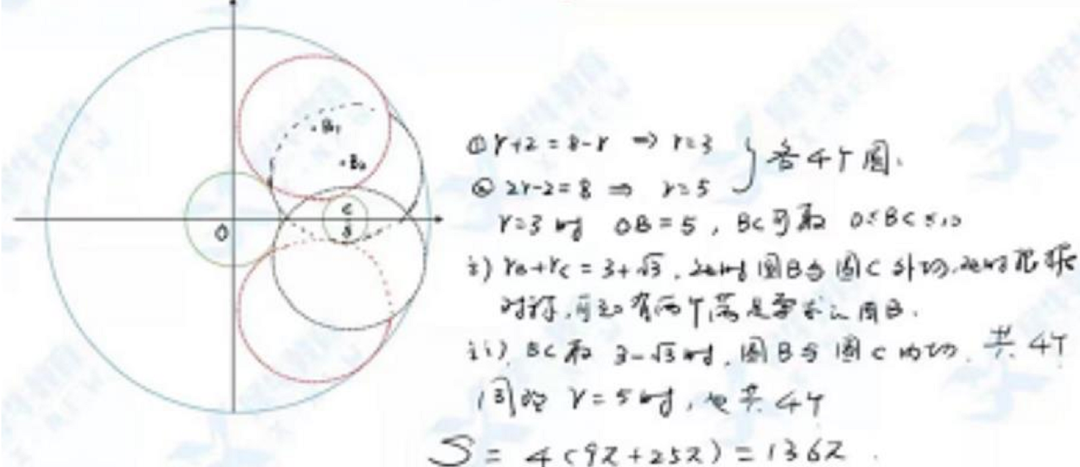 ① r+2=8-r ⇒ r=3
② 2r-2=8 ⇒ r=5
} 各4个圆.
r=3时 OB=5, BC可取 0≤BC≤10
i) rB+rC=3+√3, 此时圆B与圆C外切, 此时根据
对称, 可知有两个满足要求的圆B.
ii) BC取 3-√3时, 圆B与圆C内切. 共4个
同理 r=5时, 也共4个
S = 4(9π+25π)=136π.
B₁
B₂
C
5
O